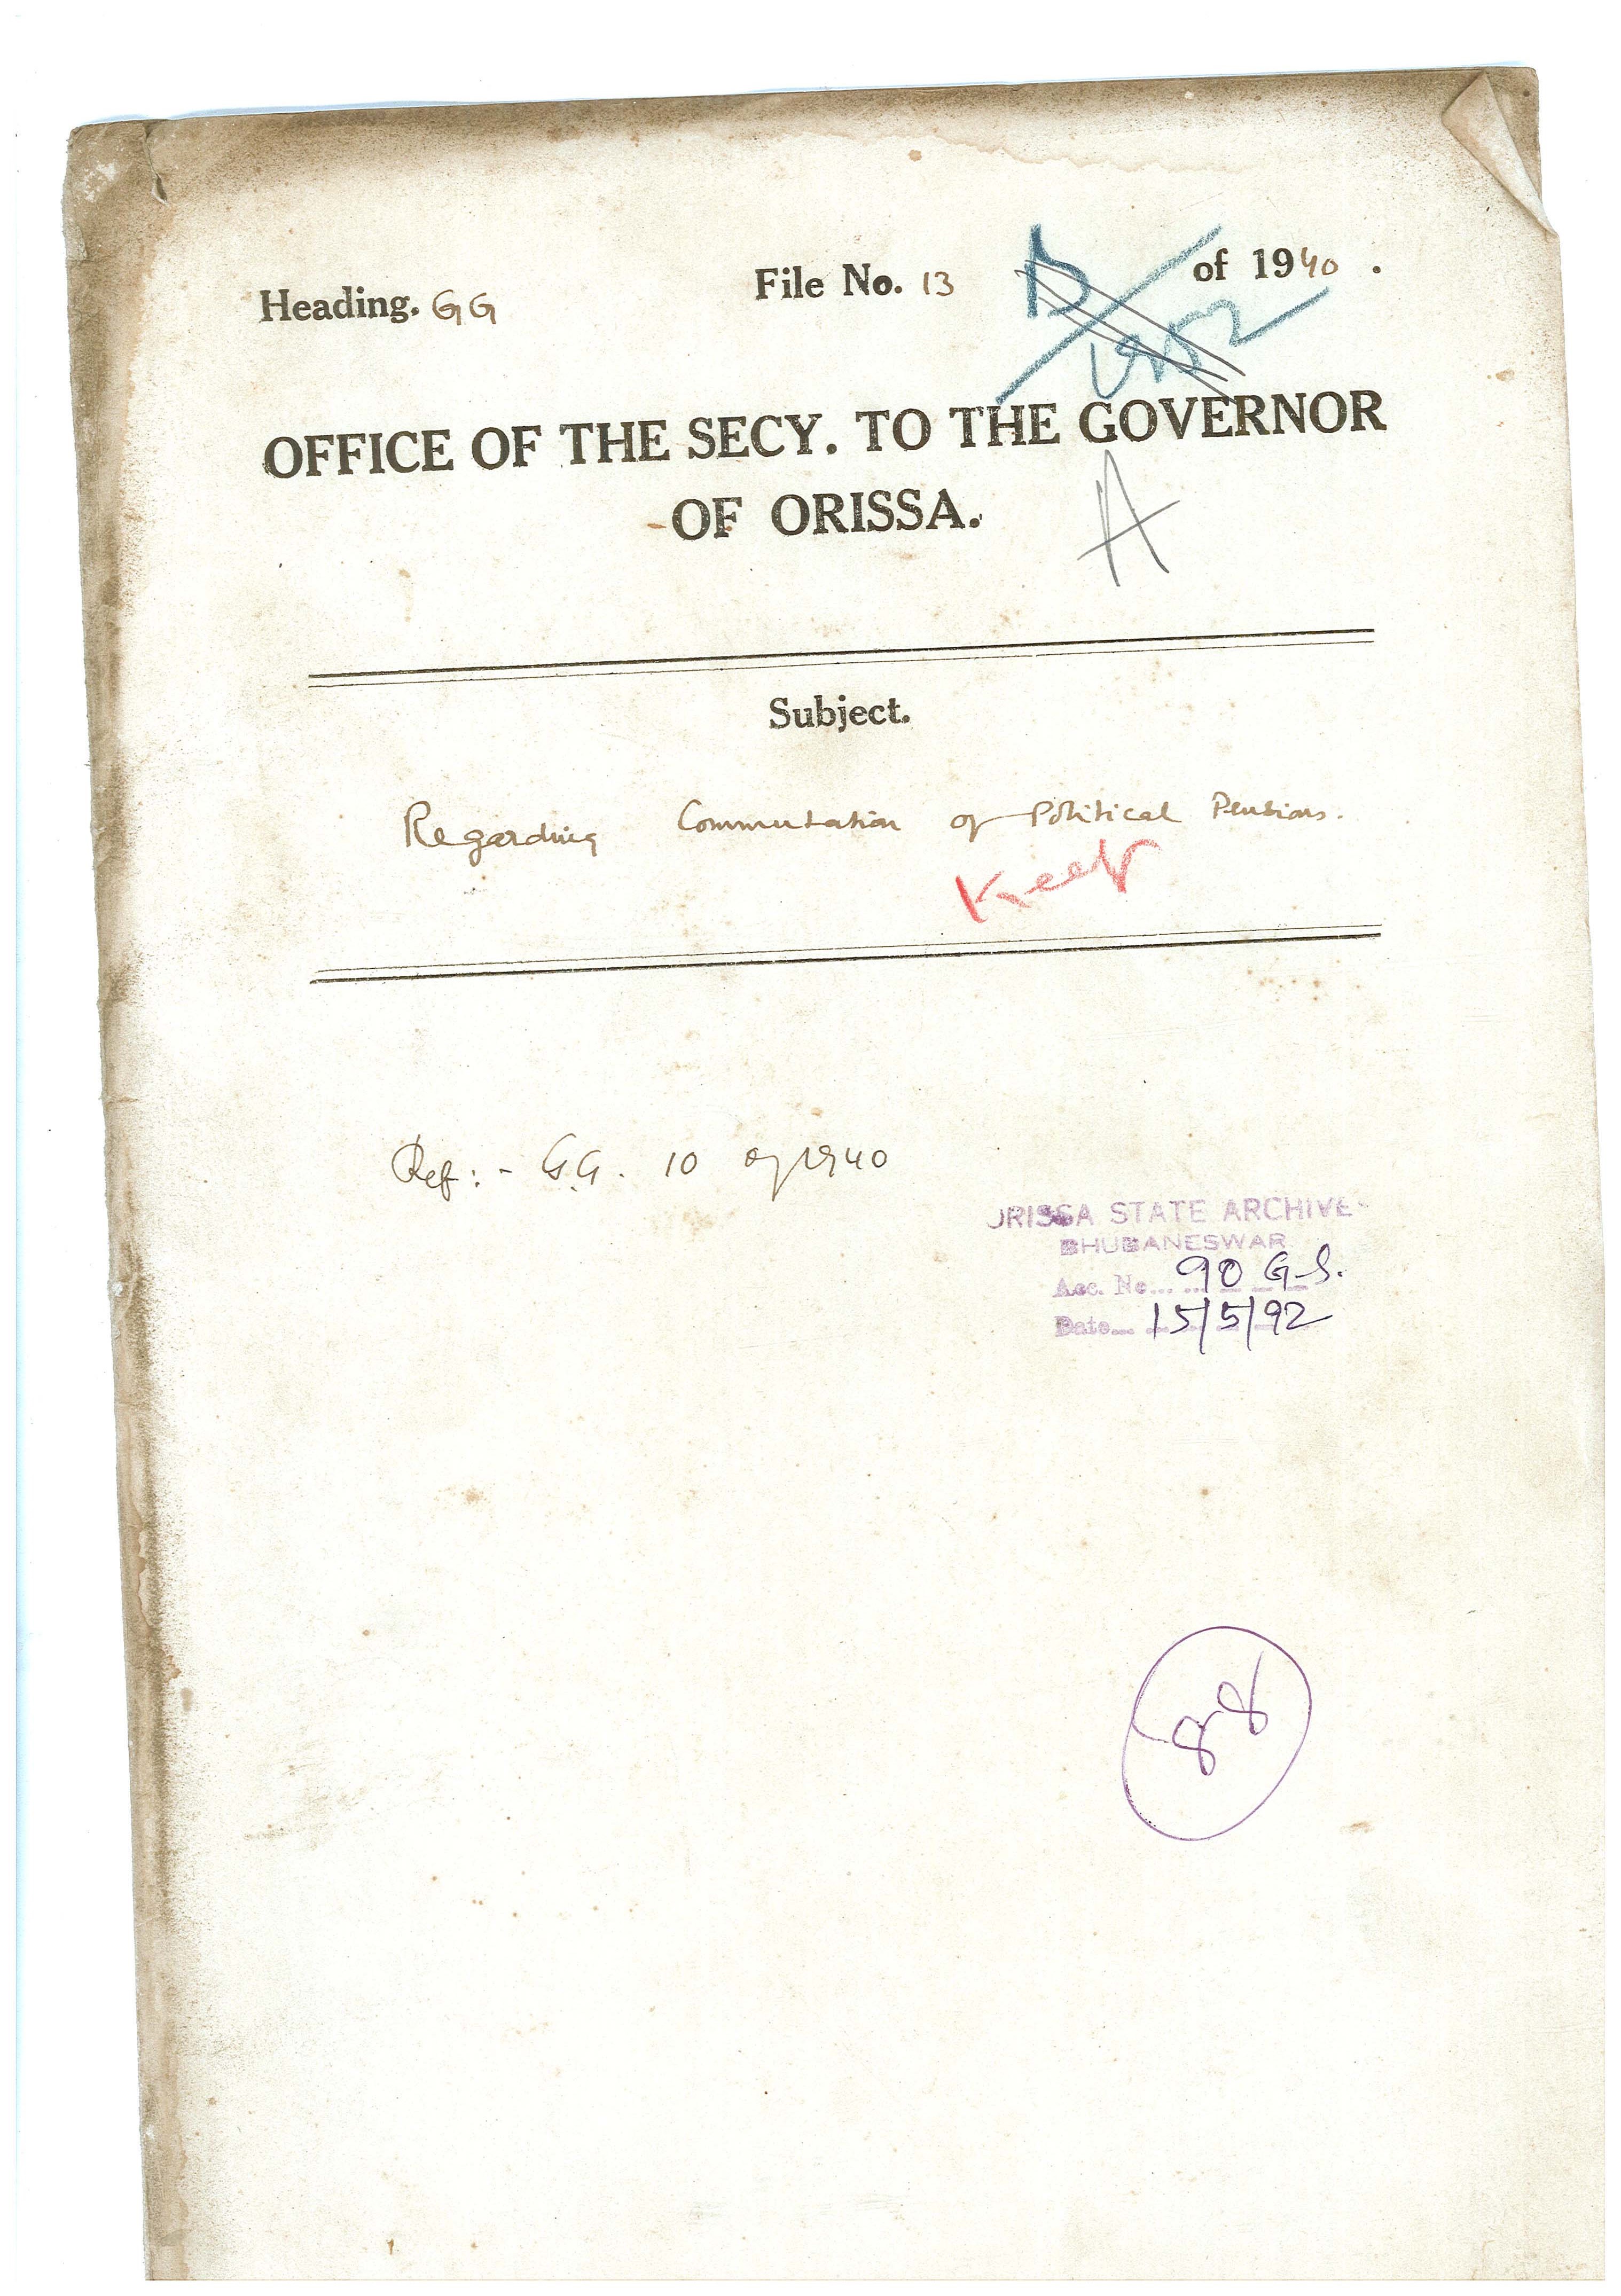 Heading. GG File No. 13 D of 1940 .
1952
OFFICE OF THE SECY. TO THE GOVERNOR
OF ORISSA.
A
Subject.
Regarding Commutation of Political Pensions.
Keep
Ref: - G.G. 10 of 1940
ORISSA STATE ARCHIVE
BHUBANESWAR
Acc. No... 90 G.S.
Date... 15/5/92
88